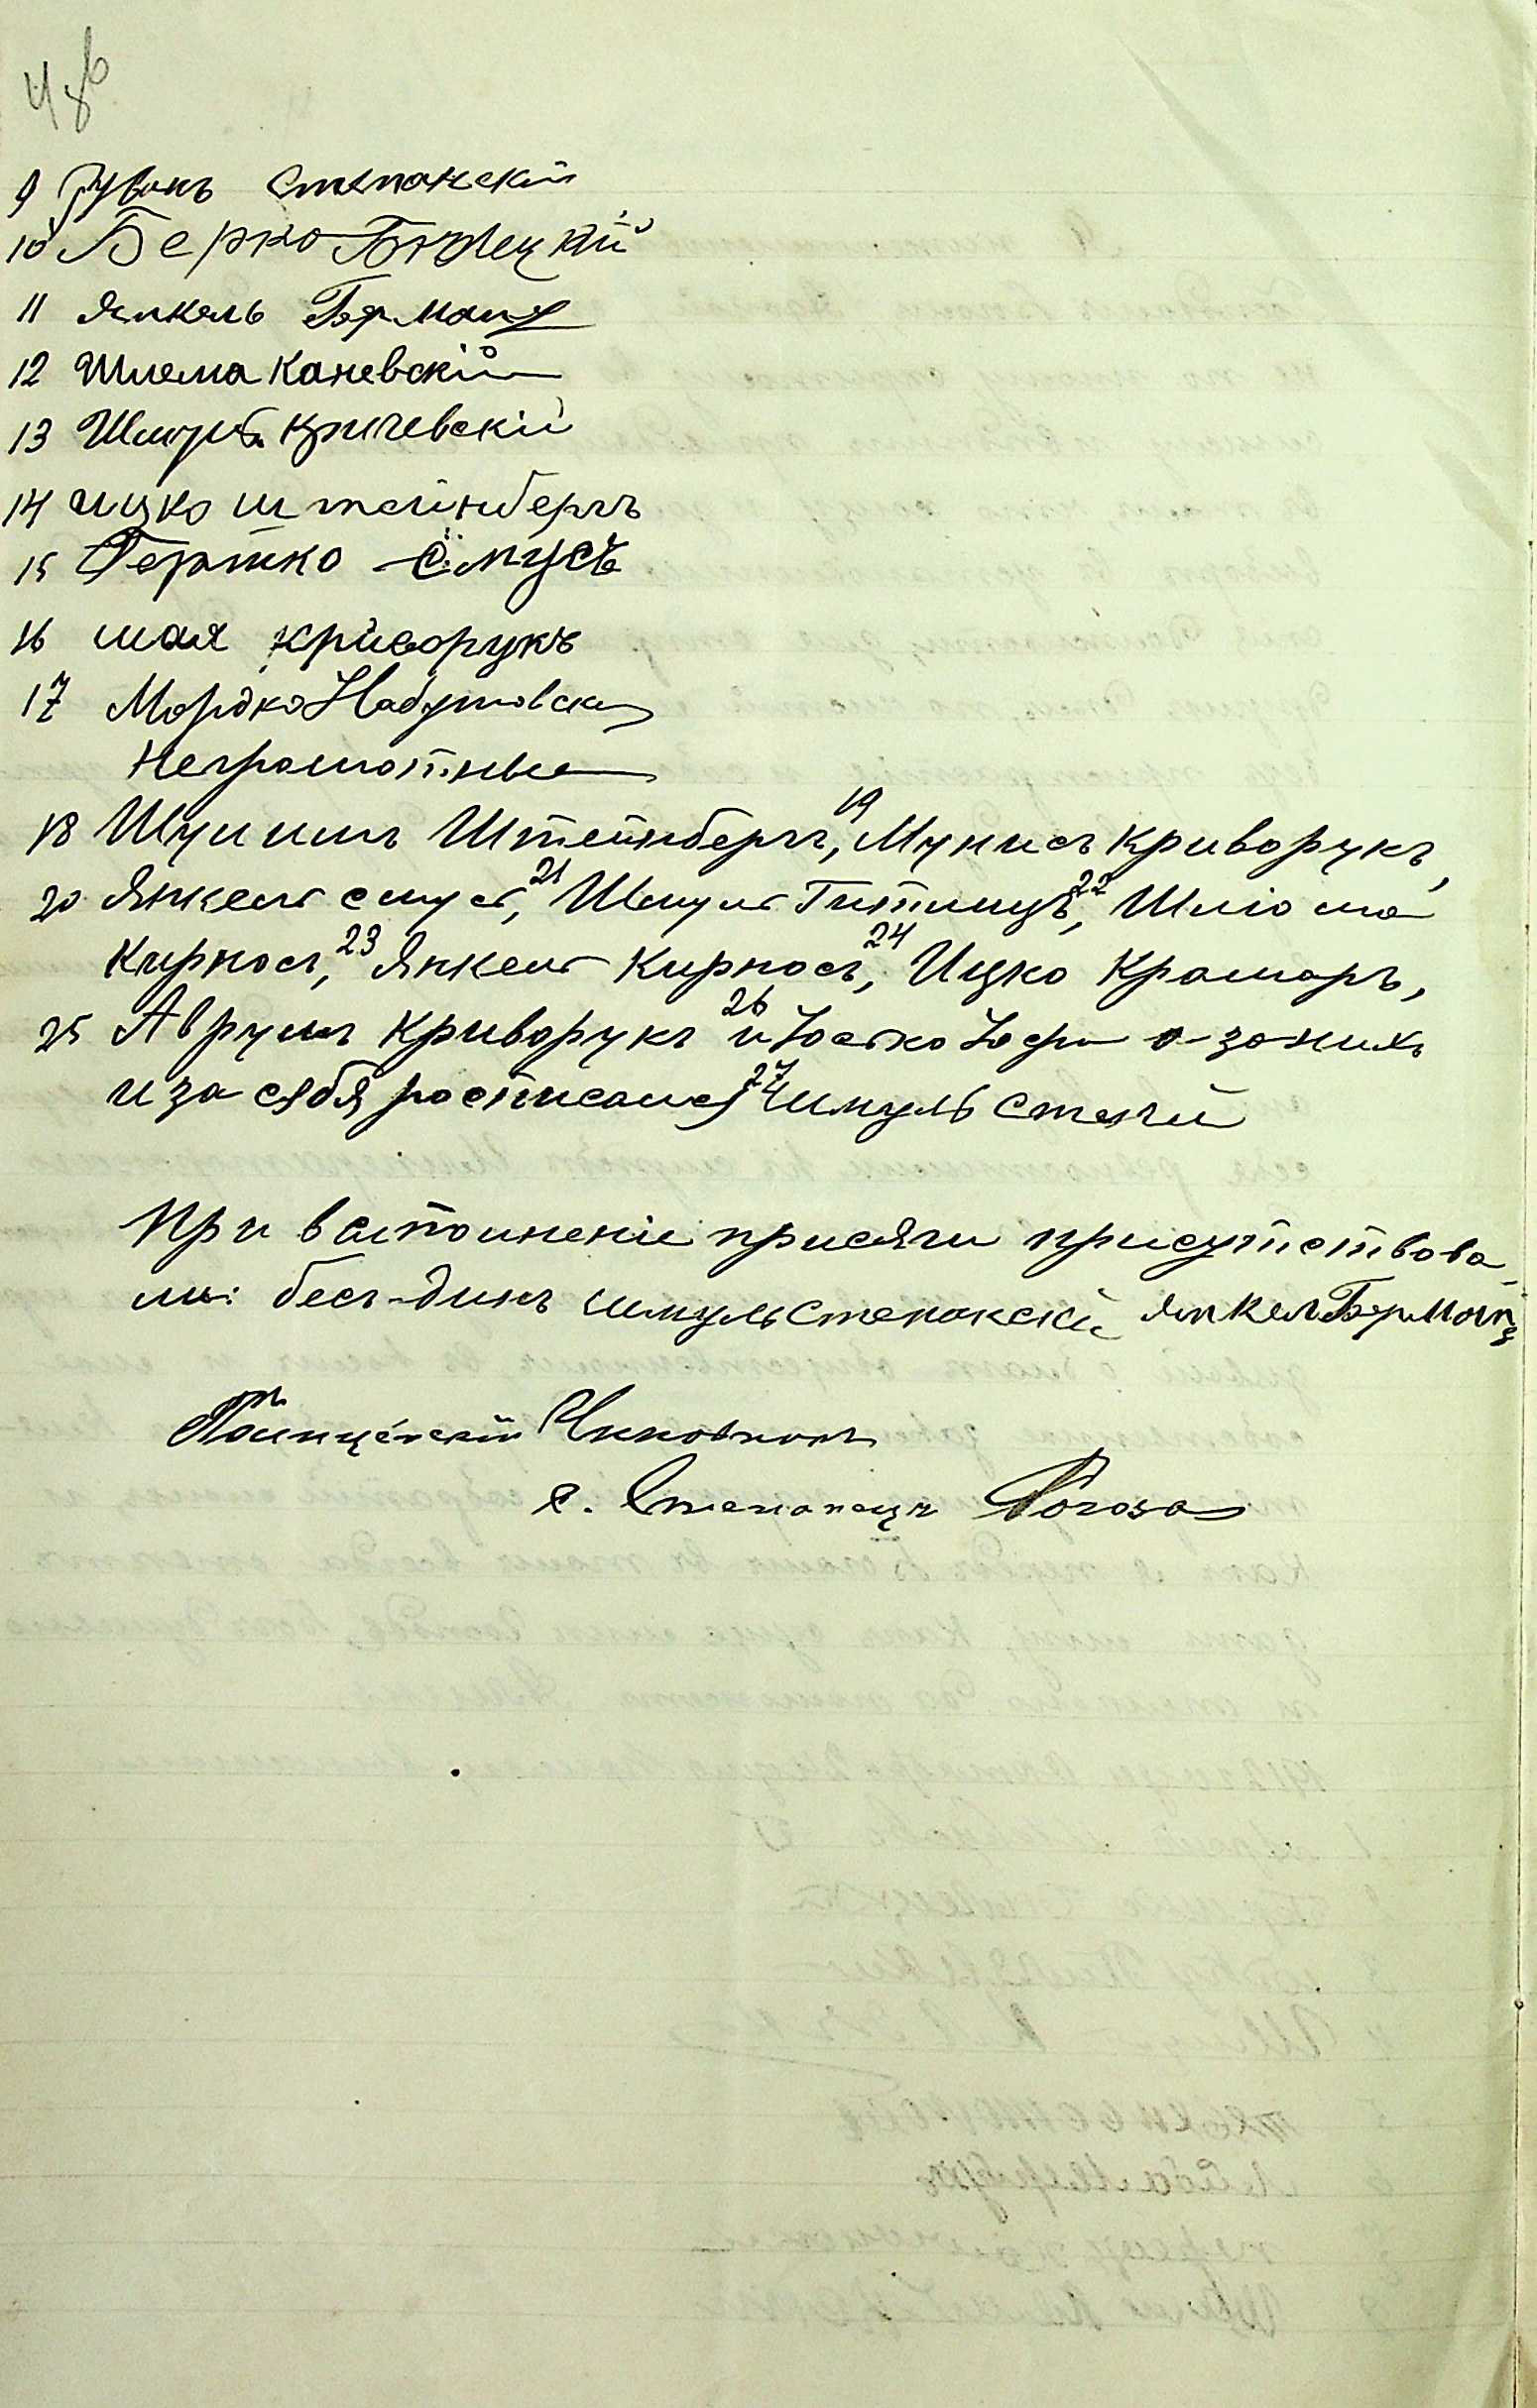 9 Рувонъ Степанскій
10 Берко
11 Янкель Берманъ
12 Шлема Каневскій
13 Шмуль Кричевскій
14 ицко штейнбергъ
15 Гершко Смусъ
16 шая криворукъ
17 Мордко Набутовск
Неграмотные
18 Шулимъ Штейнбергъ, 19 Мунисъ Криворукъ,
20 Янкель Смусъ, 21 Шмуль 22 Шліома
Кирносъ, 23 Янкель Кирносъ, 24 Ицко Крамаръ,
25 Аврумъ Криворукъ 26 и а за нихъ
и за себя росписался 27 Шмуль
При выполненіе присяги присутствова-
ли: бесъ-динъ шмуль степанскій Янкель Берманъ
Полицейскій Чиновникъ
с. Степанецъ Рогоза